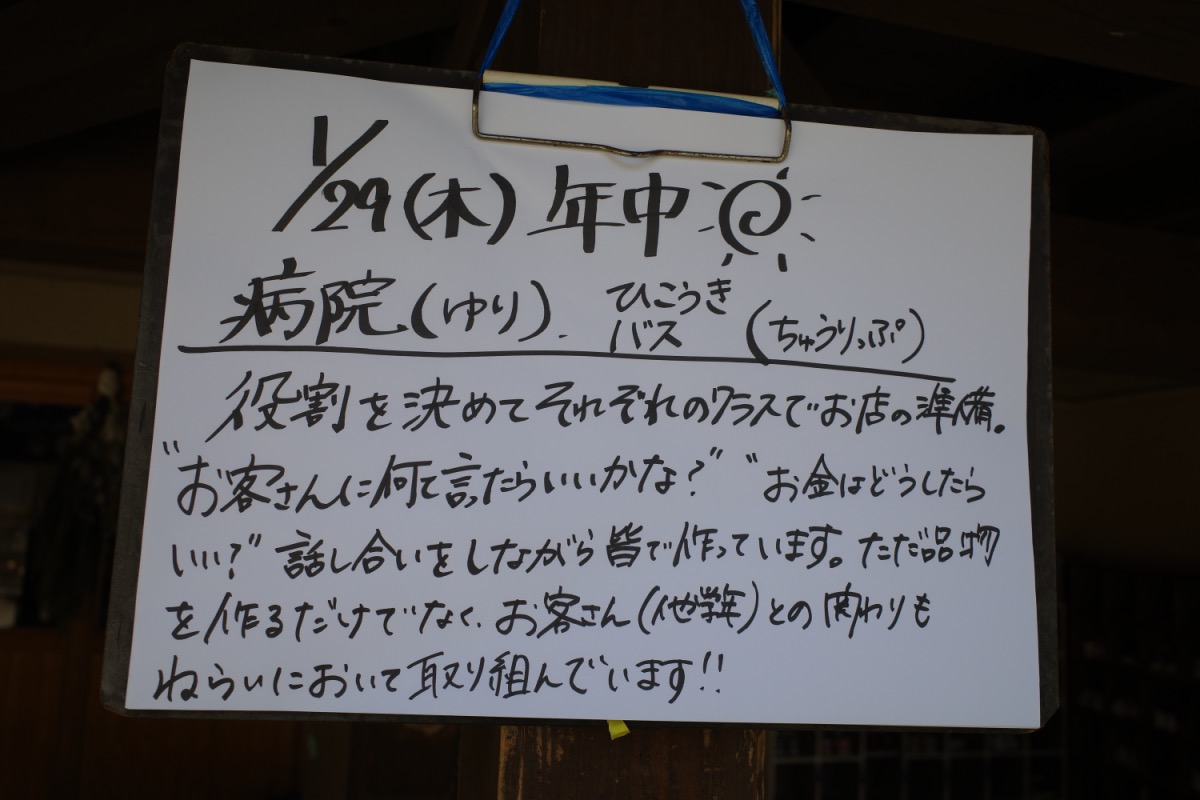 1/29(木)年中
病院(ゆり). ひこうき バス (ちゅうりっぷ)
役割を決めてそれぞれのクラスでお店の準備。
"お客さんに何て言ったらいいかな?" "お金はどうしたら
いい?" 話し合いをしながら皆で作っています。ただ品物
を作るだけでなく、お客さん(他学年)との関わりも
ねらいにおいて取り組んでいます!!